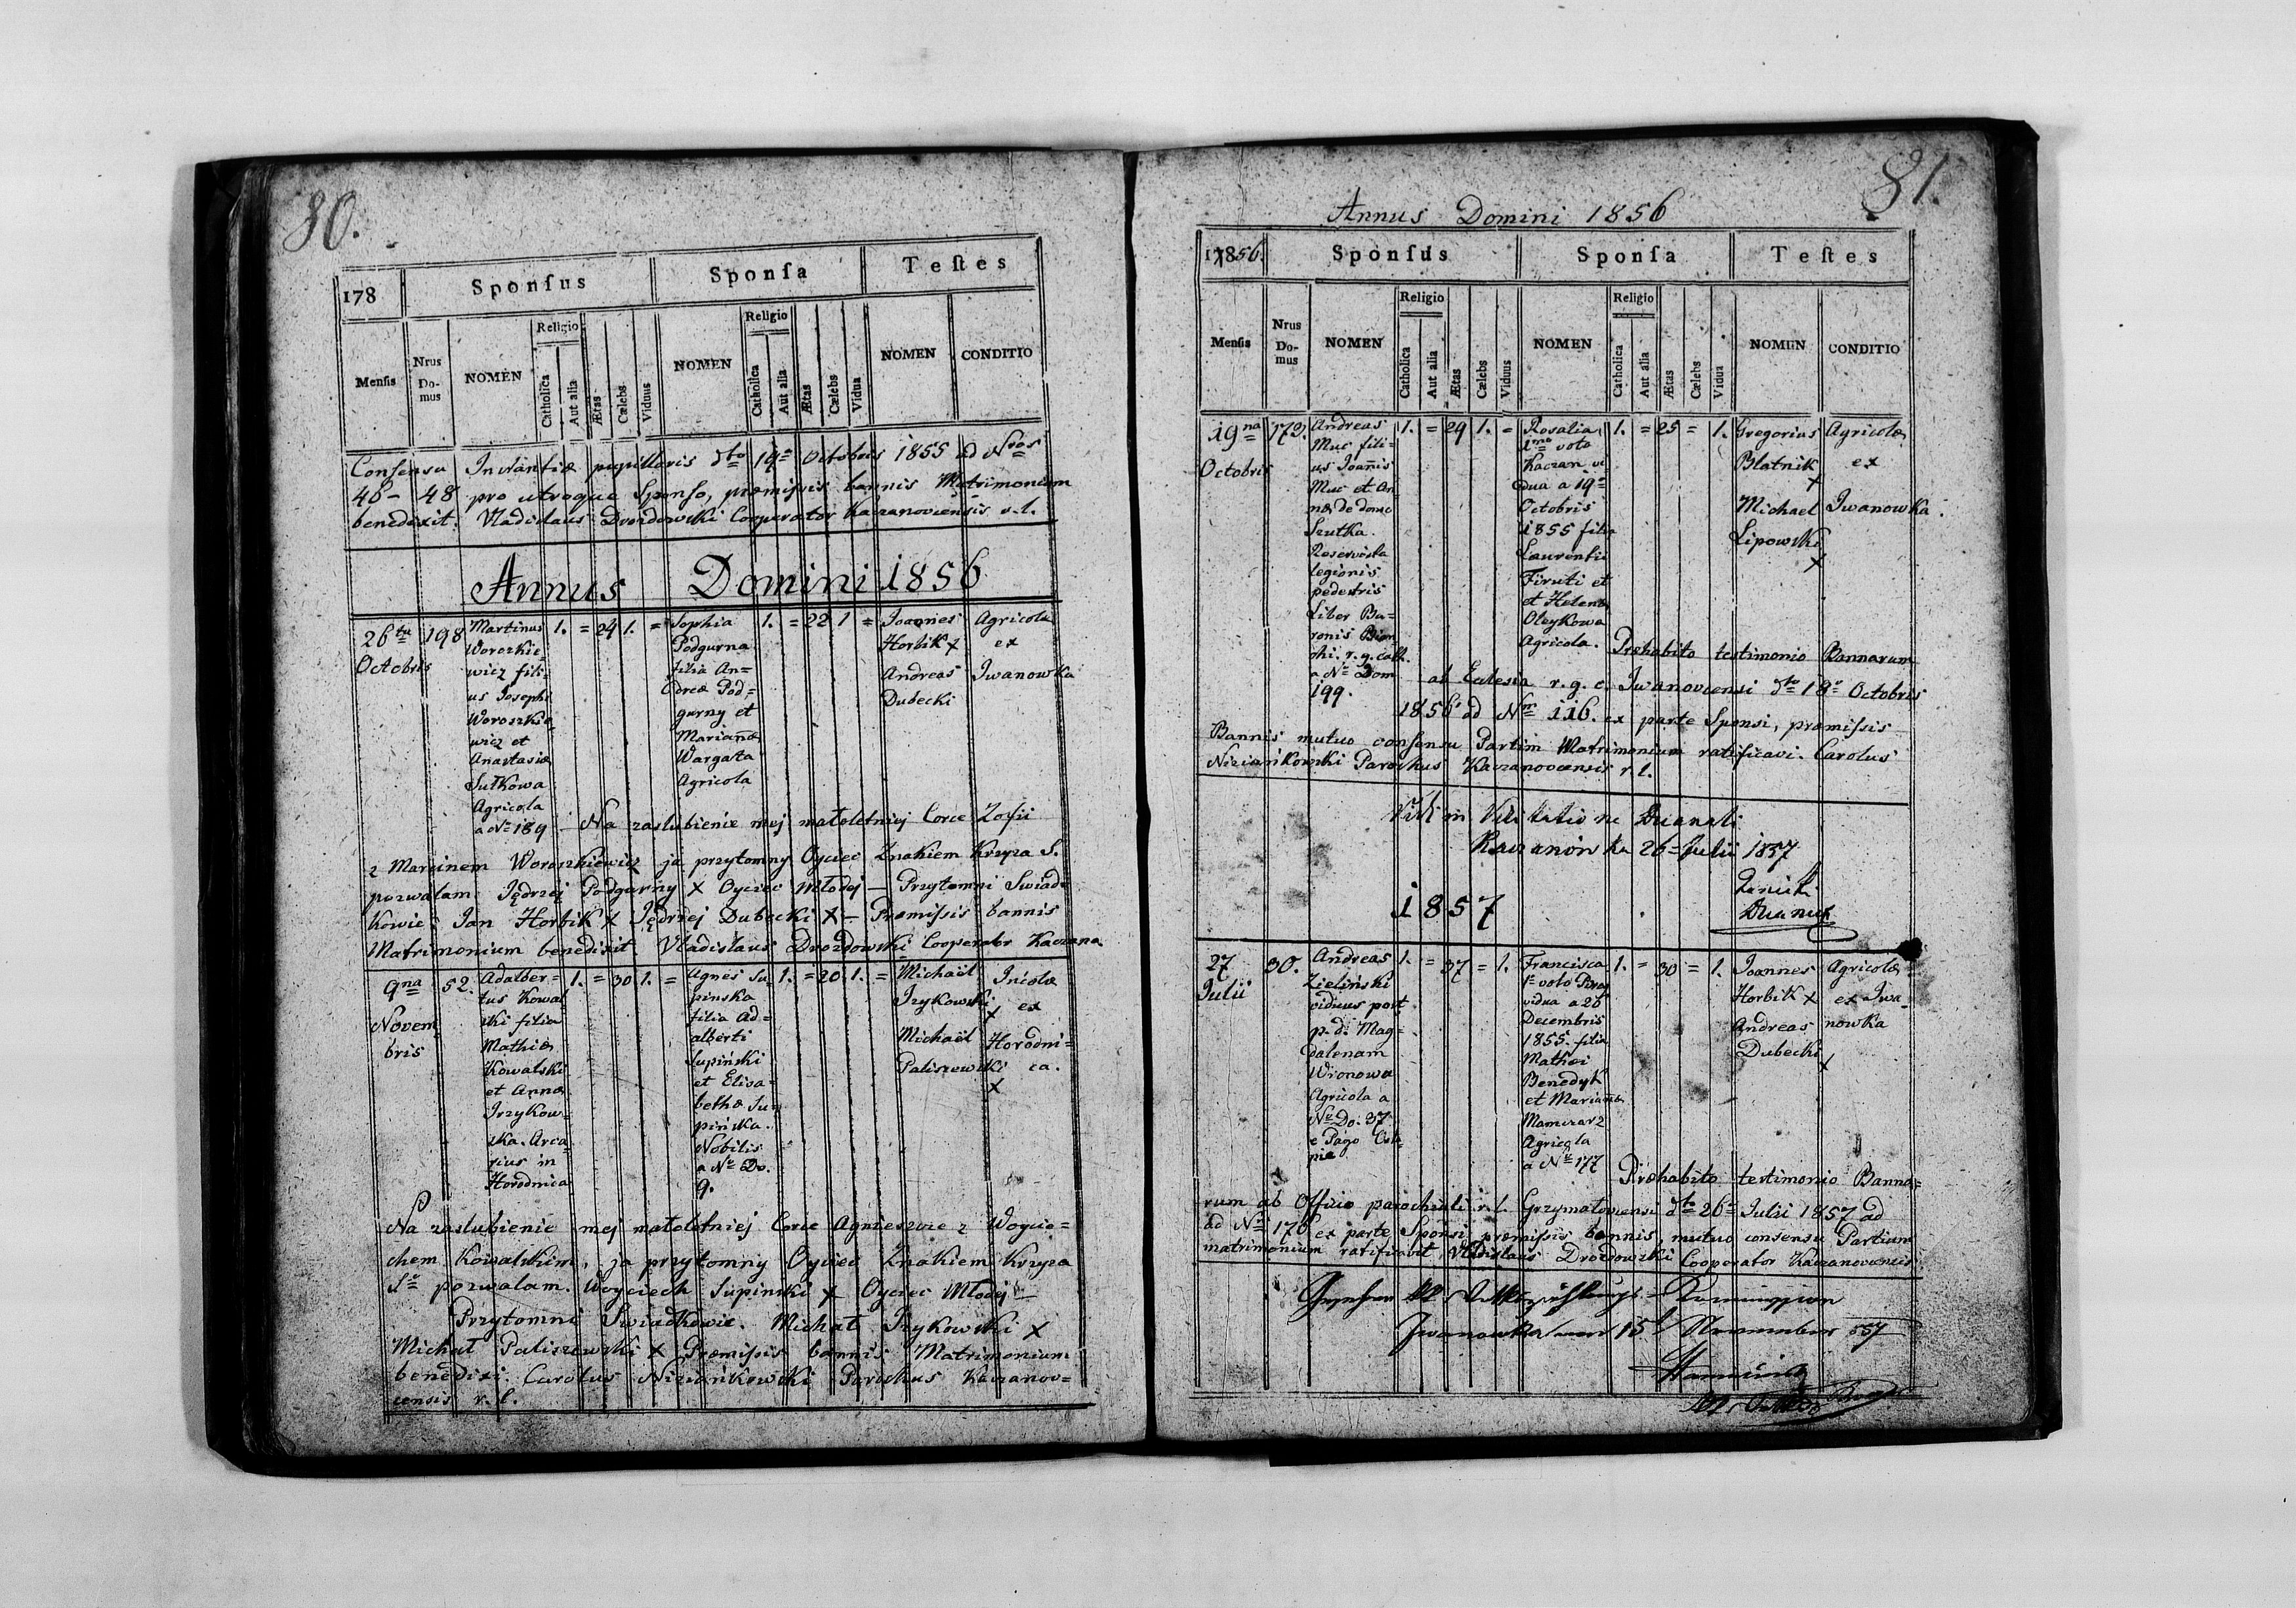 80.
178 Sponſus Sponſa Teſtes
Menſis Nrus Do- mus NOMEN Religio Catholica Aut alia Ætas Cælebs Viduus NOMEN Religio Catholica Aut alia Ætas Cælebs Vidua NOMEN CONDITIO
Consensu Instantiæ pupillaris dto 19a Octobris 1855 ad Nros
46 - 48 pro utroque Sponso, præmissis bannis Matrimonium
benedixit. Vladislaus Drozdowski Cooperator Kaczanovcensis r. l.
Annus Domini 1856
26ta
Octobris
198
Martinus
Woroszkie=
wicz fili=
us Josephi
Woroszkie
wicz et
Anastasiæ
Sutkowa
Agricola
a No 189
1. = 24 1. =
Sophia
Podgurna
filia An=
dreæ Pod=
gurny et
Marianæ
Wargata
Agricola
1. = 22 1 =
Joannes
Horbik x
Andreas
Dubecki
Agricolæ
ex
Iwanowka
Na zaslubienie mej małoletniej Corce Zofii
z Marcinem Woroszkiewicz ja przytomny Oyciec Znakiem Krzyza S.
pozwalam Jędrzej Podgurny x Oyciec Młodej — Przytomni Swiad=
kowie: Jan Horbik x Jędrzej Dubecki x — Præmissis bannis
Matrimonium benedixit Vladislaus Drozdowski Cooperator Kaczano
9na
Novem
bris
52.
Adalber=
tus Kowal
ski filia
Mathiæ
Kowalski
et Annæ
Irzykow=
ska. Arca=
rius in
Horodnica
1. = 30 1. =
Agnes Su
pinska
filia Ad=
alberti
Supiński
et Elisa=
bethæ Su
pińska.
Nobilis
a No Do.
9.
1. = 20 1. =
Michaël
Irzykowski
x
Michaël
Paliszewski
x
Incolæ
ex
Horodni=
ca.
Na zaslubienie mej małoletniej Corce Agnieszce z Woycie=
chem Kowalskim, ja przytomny Oyciec Znakiem Krzyza
So pozwalam. Woyciech Supinski x Oyciec Młodej —
Przytomni Swiadkowie. Michał Irzykowski x
Michał Paliszewski x Præmissis bannis Matrimonium
benedixi. Carolus Niziańkowski Parochus Kaczanov=
censis r. l.
81.
Annus Domini 1856
1856. Sponſus Sponſa Teſtes
Menſis Nrus Do- mus NOMEN Religio Catholica Aut alia Ætas Cælebs Viduus NOMEN Religio Catholica Aut alia Ætas Cælebs Vidua NOMEN CONDITIO
19na
Octobris
173.
Andreas
Muc fili=
us Joannis
Muc et An=
næ de domo
Szutka.
Reservista
legionis
pedestris
Liber Ba=
ronis
r. g. cath.
a No Dom
199.
1. = 29 1. =
Rosalia
1mo voto
Kaczan vi
dua a 19a
Octobris
1855 filia
Laurentii
Firuti et
et Helenæ
Oleykowa
Agricola.
1. = 25 = 1.
Gregorius
Blatnik
x
Michael
Lipowski
x
Agricolæ
ex
Iwanowka.
Præhabito testimonio Bannarum
ab Eclesia r. g. c. Iwanovcensi dto 18a Octobris
1856 ad Nm 116. ex parte Sponsi, præmissis
Bannis mutuo consensu Partim Matrimonium ratificavi. Carolus
Niziańkowski Parochus Kaczanovcensis r. l.
Vidi in Visitatione Decanali
Kaczanówka 26 Julii 1857
1857
27
Julii
30.
Andreas
Zieliński
viduus post
p. d. Mag=
dalenam
Wronowa
Agricola a
No Do. 37
e Pago
1. = 37 = 1.
Francisca
1o voto
vidua a 26
Decembris
1855. filia
Mathæi
Benedyk
et Mariannæ
Mamczarz
Agricola
a No 177
1. = 30 = 1.
Joannes
Horbik x
Andreas
Dubecki
x
Agricolæ
ex Iwa=
nowka
Præhabito testimonio Banna=
rum ab Officio parochiali r. l. Grzymałovcensi dto 26a Julii 1857 ad
ad Nm 176 ex parte Sponsi, præmissis bannis, mutuo consensu Partium
matrimonium ratificavit Vladislaus Drozdowski Cooperator Kaczanovcensis
Iwanowka 15 November 857